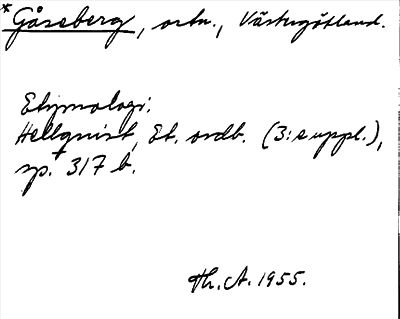 *Gåseberg, ortn., Västergötland.
Etymologi:
Hellquist, Et. ordb. (3: suppl.),
sp. 317 b.
Th. A. 1955.